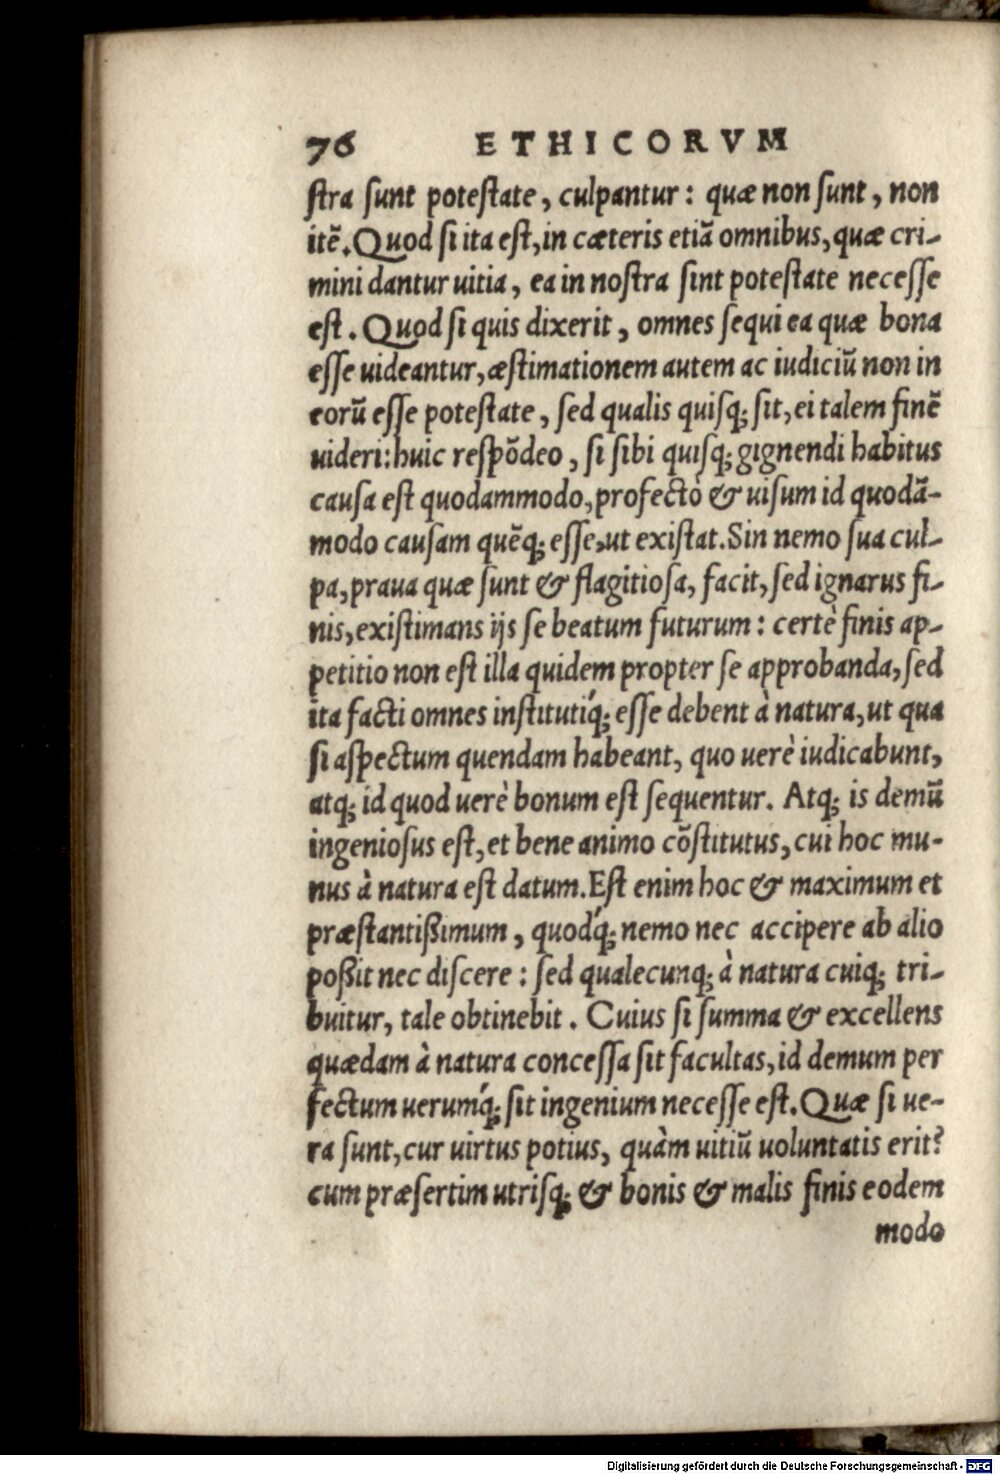 76 ETHICORVM
ſtra ſunt poteſtate, culpantur: quæ non ſunt, non
itē. Quod ſi ita eſt, in cæteris etiā omnibus, quæ cri-
mini dantur uitia, ea in noſtra ſint poteſtate neceſſe
eſt. Quod ſi quis dixerit, omnes ſequi ea quæ bona
eſſe uideantur, æſtimationem autem ac iudiciū non in
eorū eſſe poteſtate, ſed qualis quiſq; ſit, ei talem finē
uideri: huic reſpōdeo, ſi ſibi quiſq; gignendi habitus
cauſa eſt quodammodo, profectò & uiſum id quodā-
modo cauſam quēq; eſſe, ut exiſtat. Sin nemo ſua cul-
pa, praua quæ ſunt & flagitioſa, facit, ſed ignarus fi-
nis, exiſtimans ijs ſe beatum futurum: certè finis ap-
petitio non eſt illa quidem propter ſe approbanda, ſed
ita facti omnes inſtitutiq́; eſſe debent à natura, ut qua
ſi aſpectum quendam habeant, quo uerè iudicabunt,
atq; id quod uerè bonum eſt ſequentur. Atq; is demū
ingenioſus eſt, et bene animo cōſtitutus, cui hoc mu-
nus à natura eſt datum. Eſt enim hoc & maximum et
præſtantißimum, quodq́; nemo nec accipere ab alio
poßit nec diſcere: ſed qualecunq; à natura cuiq; tri-
buitur, tale obtinebit. Cuius ſi ſumma & excellens
quædam à natura conceſſa ſit facultas, id demum per
fectum uerumq́; ſit ingenium neceſſe eſt. Quæ ſi ue-
ra ſunt, cur uirtus potius, quàm uitiū uoluntatis erit?
cum præſertim utriſq; & bonis & malis finis eodem
modo
Digitalisierung gefördert durch die Deutsche Forschungsgemeinschaft - DFG